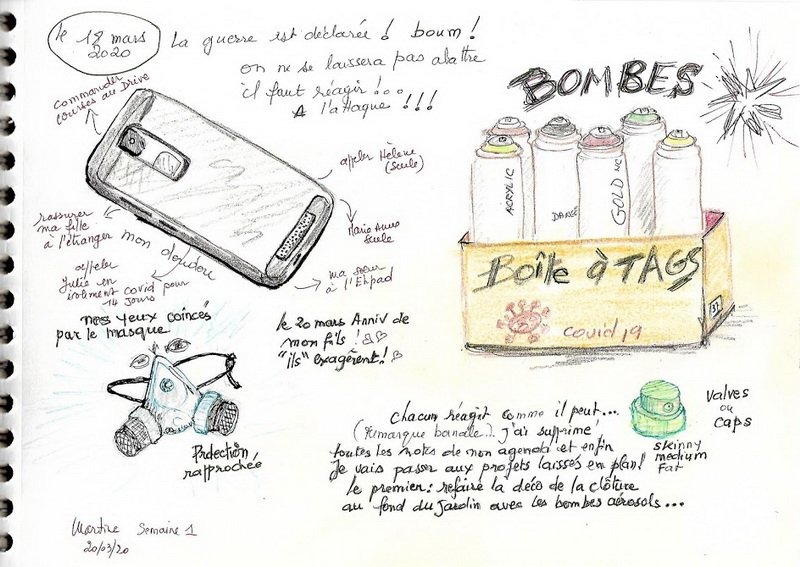 le 18 mars
2020
La guerre est déclarée ! boum !
on ne se laissera pas abattre
il faut réagir !...
A l'attaque !!!
Commander
courses au Drive
appeler Hélène
(seule)
Marie Anne
seule
ma soeur
à l'Ehpad
rassurer
ma fille
à l'étranger
mon doudou
appeler
Julie en
isolement covid pour
14 jours
BOMBES
ACRYLIC
GOLD
Boîte à TAGS
covid 19
mes yeux coincés
par le masque
Protection
rapprochée
le 20 mars Anniv de
mon fils !
"ils" exagèrent !
chacun réagit comme il peut...
(remarque banale..) j'ai supprimé
toutes les notes de mon agenda et enfin
je vais passer aux projets laissés en plan!
le premier : refaire la déco de la clôture
au fond du jardin avec les bombes aérosols...
valves
ou
caps
skinny
medium
Fat
Martine Semaine 1
20/03/20